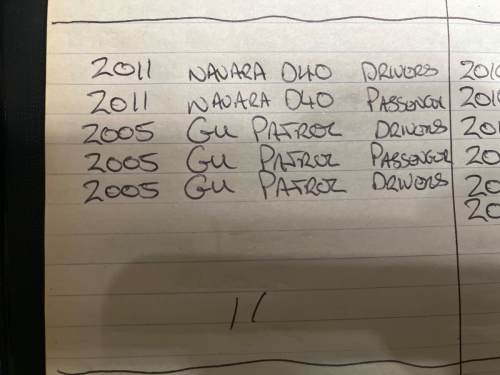 2011 NAVARA D40 DRIVERS 2010
2011 NAVARA D40 PASSENGER 201
2005 GU PATROL DRIVERS 201
2005 GU PATROL PASSENGER 20
2005 GU PATROL DRIVERS 20
20
11